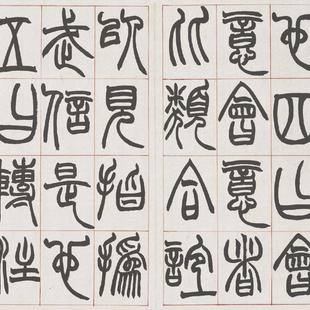 也四曰會
意會意者
比類合誼
以見指撝
武信是也
五曰轉注